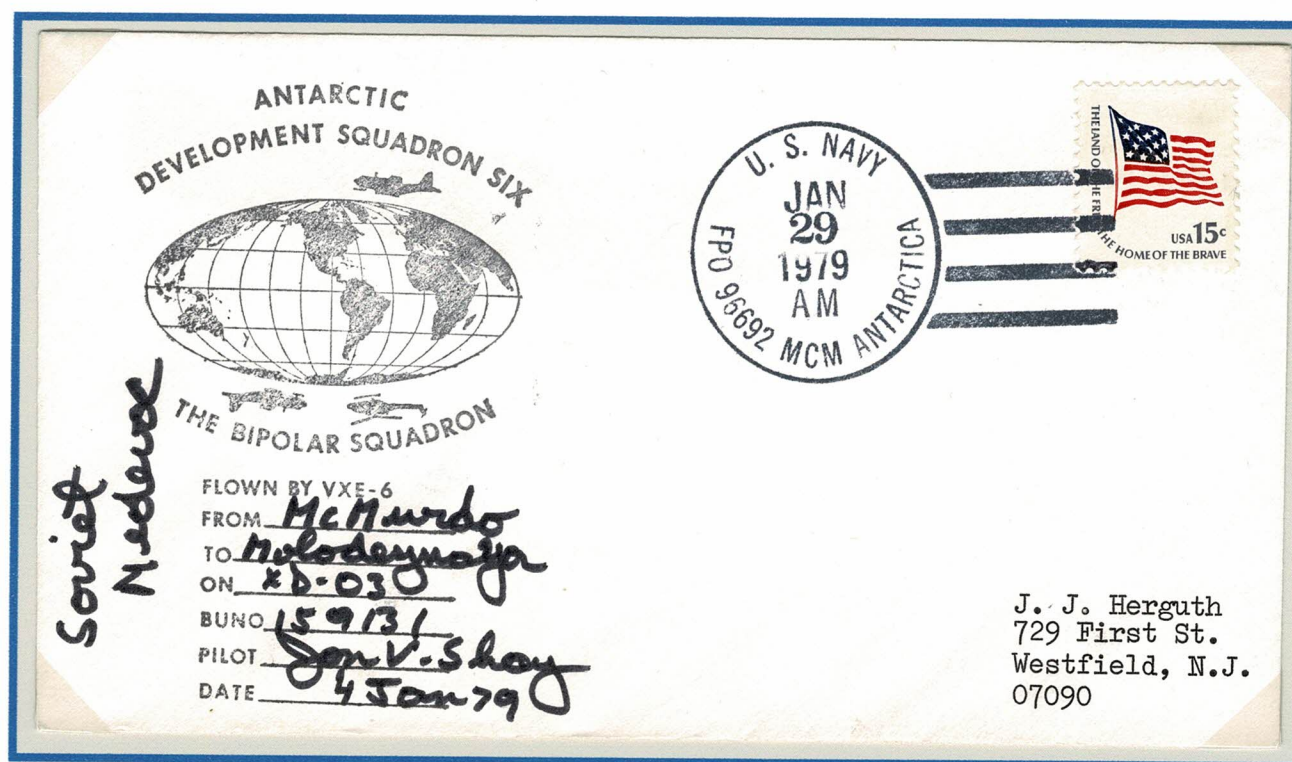 ANTARCTIC
DEVELOPMENT SQUADRON SIX
THE BIPOLAR SQUADRON
FLOWN BY VXE-6
FROM McMurdo
TO Molodeznaya
ON XD-03
BUNO 159131
PILOT Jon V. Shay
DATE 4 Jan 79
Soviet
Medevac
U. S. NAVY
JAN
29
1979
AM
FPO 96692 MCM ANTARCTICA
THE LAND OF THE FREE THE HOME OF THE BRAVE
USA 15c
J. J. Herguth
729 First St.
Westfield, N.J.
07090